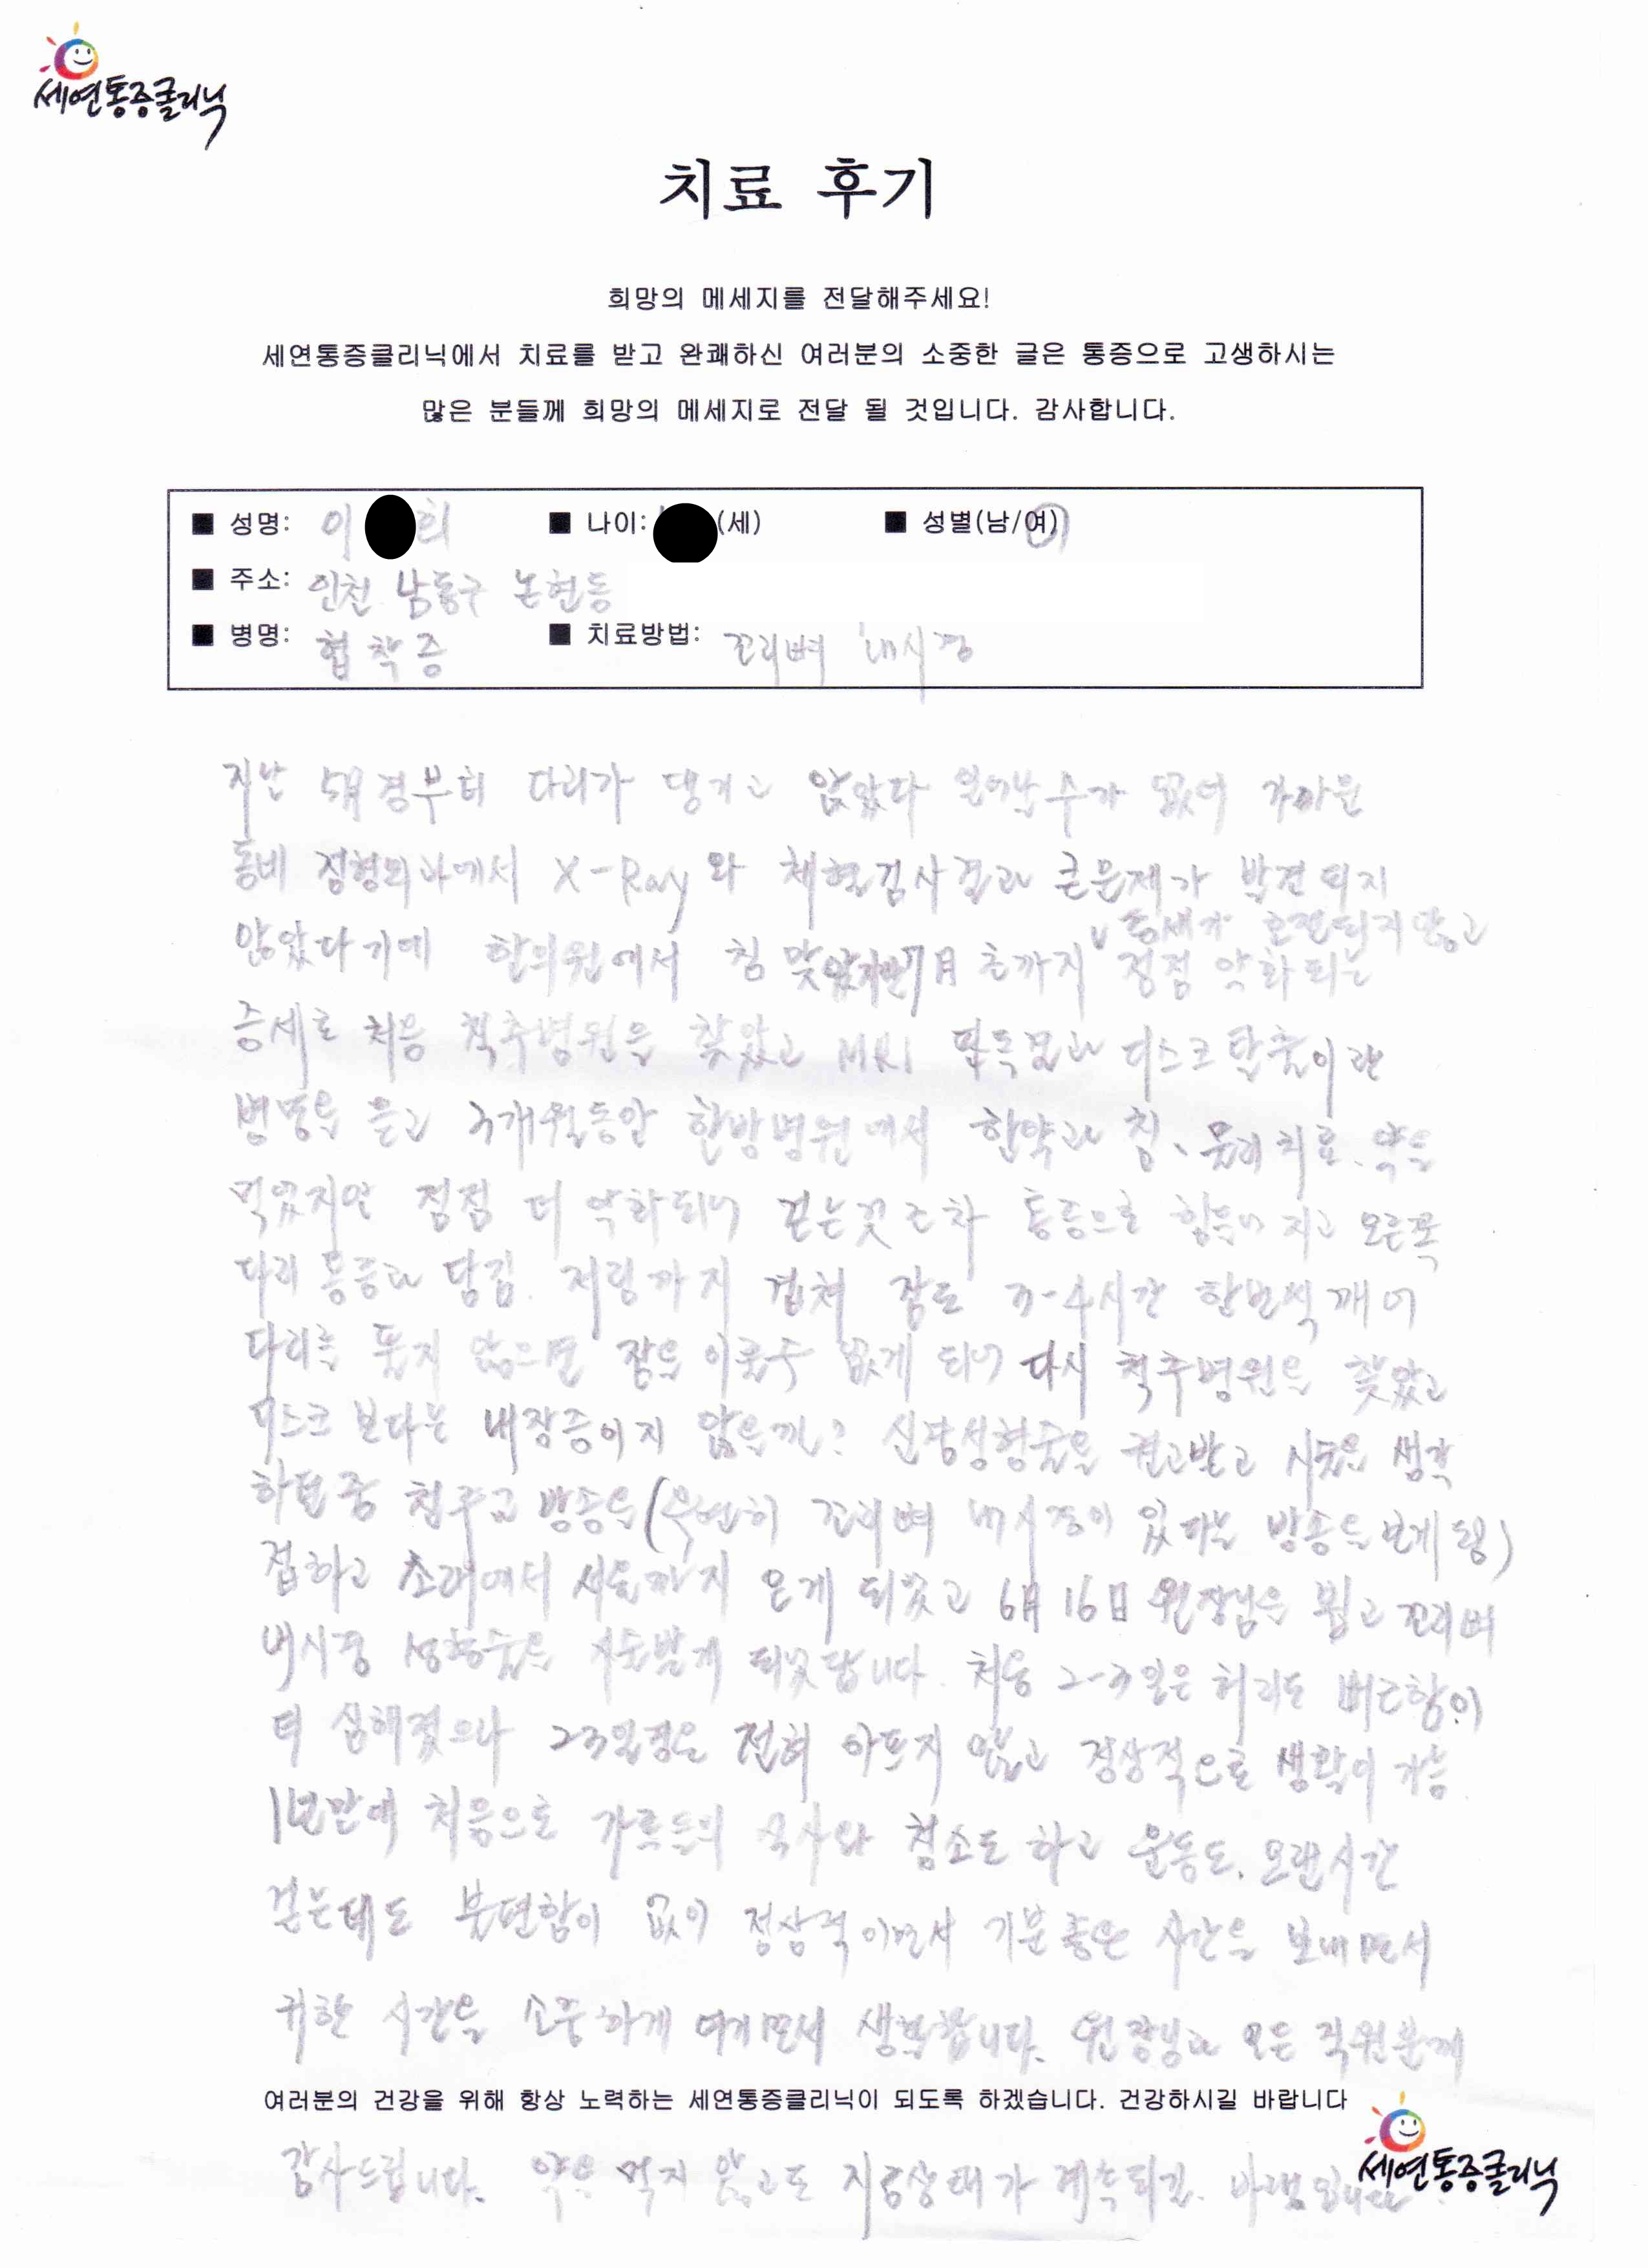 세연통증클리닉
치료 후기
희망의 메세지를 전달해주세요!
세연통증클리닉에서 치료를 받고 완쾌하신 여러분의 소중한 글은 통증으로 고생하시는
많은 분들께 희망의 메세지로 전달 될 것입니다. 감사합니다.
■ 성명: 이 희 ■ 나이: (세) ■ 성별(남/여)
■ 주소: 인천 남동구 논현동
■ 병명: 협착증 ■ 치료방법: 꼬리뼈 내시경
지난 5月경부터 다리가 댕기고 앉았다 일어날수가 없어 가까운
동네 정형외과에서 X-Ray 와 채혈검사결과 큰문제가 발견되지
않았다기에 한의원에서 침 맞았지만 7月 초까지 점점 악화되는
증세가 호전되지 않고
증세로 처음 척추병원을 찾았고 MRI 판독결과 디스크탈출이란
병명을 듣고 3개월동안 한방병원에서 한약과 침、물리치료、약을
먹었지만 점점 더 악화되어 걷는것조차 통증으로 힘들어지고 오른쪽
다리 통증과 당김、저림까지 겹쳐 잠도 3-4시간 한번씩 깨어
다리를 풀지 않으면 잠을 이룰수 없게 되어 다시 척추병원을 찾았고
디스크 보다는 내장증이지 않을까? 신경성형술을 권고받고 시술을 생각
하던중 친구고 방송을(우연히 꼬리뼈 내시경이 있다는 방송을 보게됨)
접하고 소래에서 서울까지 오게 되었고 6月 16日 원장님을 뵙고 꼬리뼈
내시경 성형술을 시술받게 되었답니다. 처음 2-3일은 허리도 뻐근함이
더 심해졌으나 23일경은 전혀 아프지 않고 정상적으로 생활이 가능.
1년만에 처음으로 가족들의 식사와 청소도 하고 운동도. 오랜시간
걷는데도 불편함이 없이 정상적이면서 기분좋은 시간을 보내면서
귀한 시간을 소중하게 여기면서 생활합니다. 원장님과 모든 직원분께
여러분의 건강을 위해 항상 노력하는 세연통증클리닉이 되도록 하겠습니다. 건강하시길 바랍니다
감사드립니다. 약을 먹지 않고도 지금상태가 계속되길. 바램입니다
세연통증클리닉